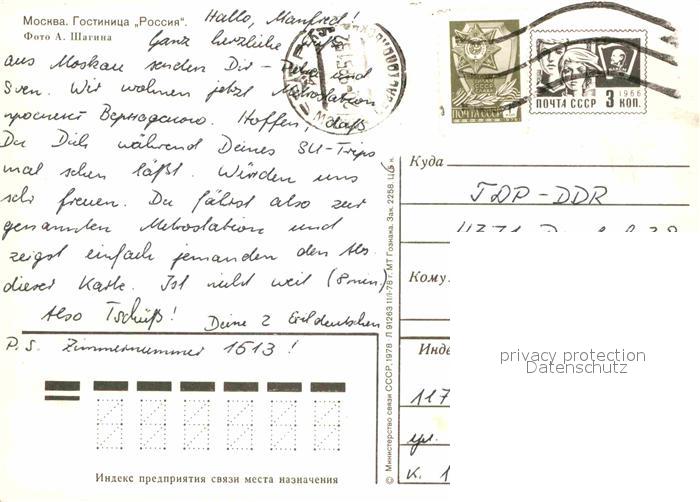 Москва. Гостиница „Россия“.
Фото А. Шагина
Hallo, Manfred!
Ganz herzliche Grüße
aus Moskau senden Dir – Peter und
Sven. Wir wohnen jetzt Metrostation
проспект Вернадского. Hoffen, daß
Du Dich während Deines SU-Trips
mal sehen läßt. Würden uns
sehr freuen. Du fährst also zur
genannten Metrostation und
zeigst einfach jemanden den Abs.
dieser Karte. Ist nicht weit (8 min.)
Also Tschüß! Deine 2 Exildeutschen
P.S. Zimmernummer 1613!
Индекс предприятия связи места назначения
© Министерство связи СССР, 1978 Л 91263 11/I-78 г. МТ Гознака. Зак. 2258. Ц. 5 к.
ПОЧТА СССР
ПОЧТА СССР 3 КОП.
1966
Куда
ГДР-DDR
Кому
Инде
117
ул.
к. 1
privacy protection
Datenschutz